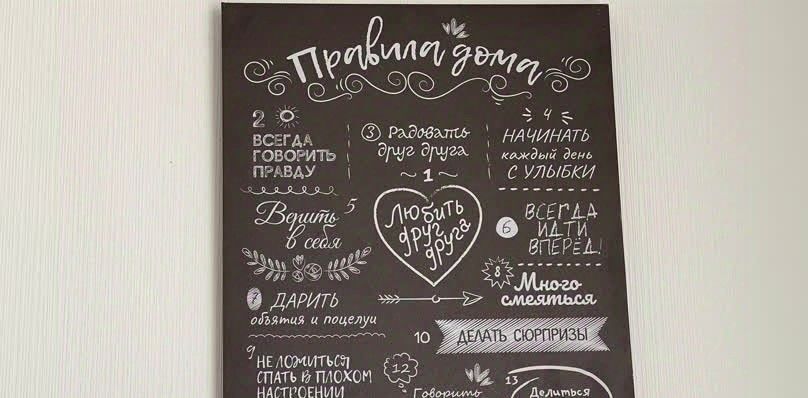 Правила дома
2
ВСЕГДА
ГОВОРИТЬ
ПРАВДУ
3 Радовать
друг друга
4
НАЧИНАТЬ
каждый день
С УЛЫБКИ
~ 1 ~
Любить
друг
друга
5
Верить
в себя
6
ВСЕГДА
ИДТИ
ВПЕРЁД!
7 ДАРИТЬ
объятия и поцелуи
8
Много
смеяться
10 ДЕЛАТЬ СЮРПРИЗЫ
9
НЕ ЛОЖИТЬСЯ
СПАТЬ В ПЛОХОМ
НАСТРОЕНИИ
12
Говорить
13
Делиться